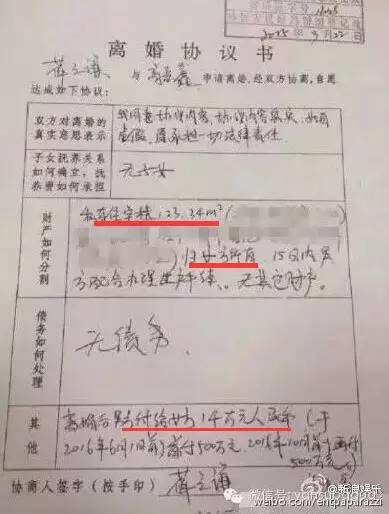 2015 年 9 月 22 日
离婚协议书
薛之谦 与 高磊鑫 申请离婚，经双方协商，自愿
达成如下协议：
双方对离婚的
真实意思表示
我同意协议内容，协议内容属实，如有
虚假，愿承担一切法律责任
子女抚养关系
如何确立，抚
养费如何承担
无子女
财产如何分割
私有住宅 123.34m²
归女方所有 15日内男
方配合办理过户手续。无其它财产
债务如何处理
无债务
其他
离婚后男方付给女方1千万元人民币（于
2016年6月1日前首付500万元，2016年10月前再付
500万元）
协商人签字（按手印） 薛之谦
@新浪娱乐
weibo.com/entpaparazzi